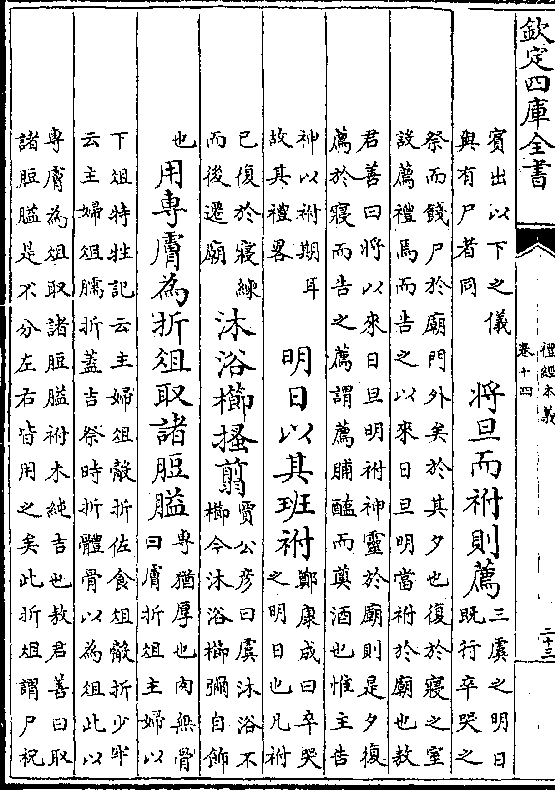 欽定四庫全書
禮經本義
卷十四
二十三
賓出以下之儀
與有尸者同
將旦而祔則薦
三虞之明日
既行卒哭之
祭而餞尸於廟門外矣於其夕也復於寢之室
設薦禮焉而告之以來日旦明當祔於廟也敖
君善曰將以來日旦明祔神靈於廟則是夕復
薦於寢而告之薦謂薦脯醢而奠酒也惟主告
神以祔期耳
故其禮畧
明日以其班祔
鄭康成曰卒哭
之明日也凡祔
已復於寢練
而後遷廟
沐浴櫛搔翦
賈公彦曰虞沐浴不
櫛今沐浴櫛彌自飾
也
用專膚為折俎取諸脰膉
專猶厚也肉無骨
曰膚折俎主婦以
下俎特牲記云主婦俎觳折佐食俎觳折少牢
云主婦俎臑折蓋吉祭時折體骨以為俎此以
專膚為俎取諸脰膉祔未純吉也敖君善曰取
諸脰膉是不分左右皆用之矣此折俎謂尸祝